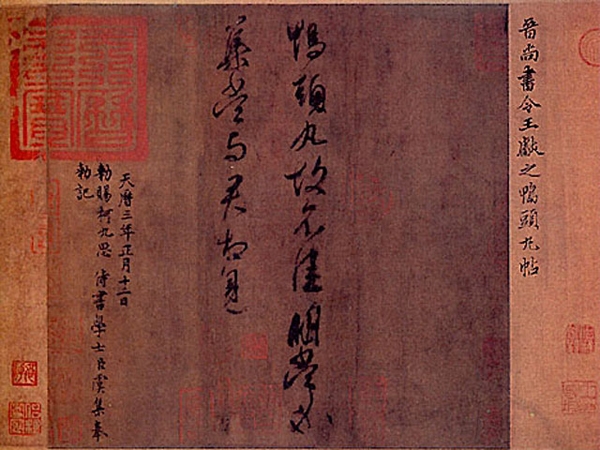 晉尚書令王獻之鴨頭丸帖
鴨頭丸故不佳明當必
集當與君相見
天曆三年正月十二日
勅賜柯九思 侍書學士臣虞集奉
勅記